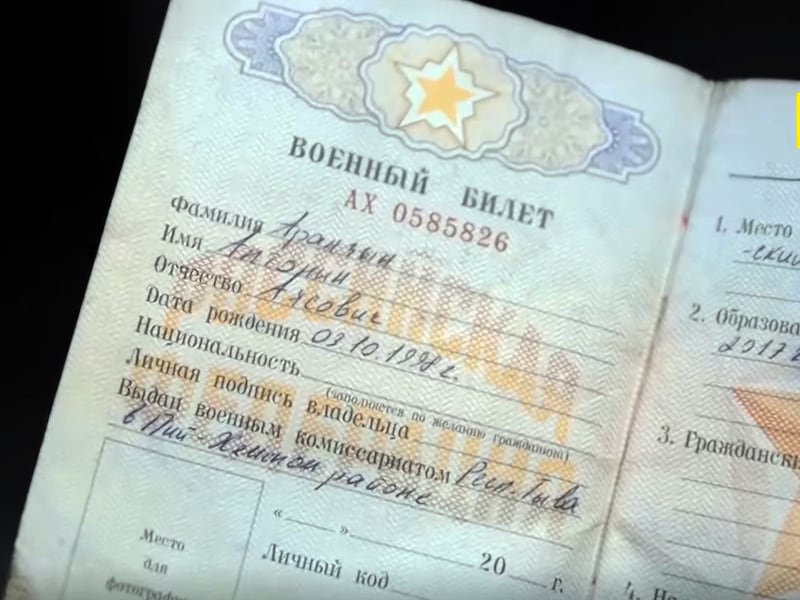 ВОЕННЫЙ БИЛЕТ
АХ 0585826
Фамилия Арапчын
Имя Антонин
Отчество Ахсович
Дата рождения 03.10.1998г.
Национальность
(заполняется по желанию гражданина)
Личная подпись владельца
Выдан военным комиссариатом Респ. Тыва
в Пий-Хемском районе
« » 20 г.
Личный код
Место
для
фотографии
1. Место
-ский
2. Образова
2017
3. Гражданск
4. На